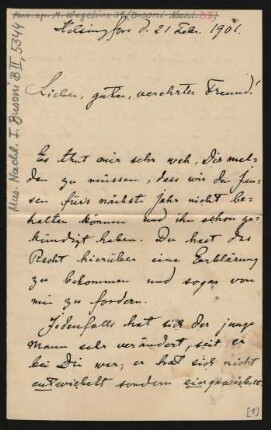 Mus. ep. M. Wegelius 27 (Busoni-Nachl. B II)
Mus. Nachl. F. Busoni B II, 5344
Helsingfors d. 21 Febr. 1901.
Lieber, guter, verehrter Freund!
Es thut mir sehr weh, Dir mel-
den zu müssen, dass wir den Jen-
sen fürs nächst Jahr nicht be-
halten können und ihn schon ge-
kündigt haben. Du hast das
Recht hierüber eine Erklärung
zu bekommen und sogar von
mir zu fordern.
Jedenfalls hat sich der junge
Mann sehr verändert, seit er
bei Dir war; er hat sich nicht
entwickelt sondern eingewickelt.
[1]